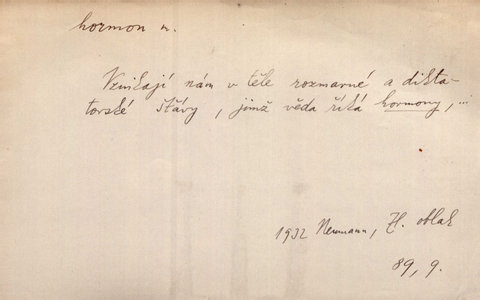 hormon n.
Vznikají nám v těle rozmarné a dikta-
torské šťávy, jimž věda říká hormony, ...
1932 Neumann, Zl. oblak
89, 9.